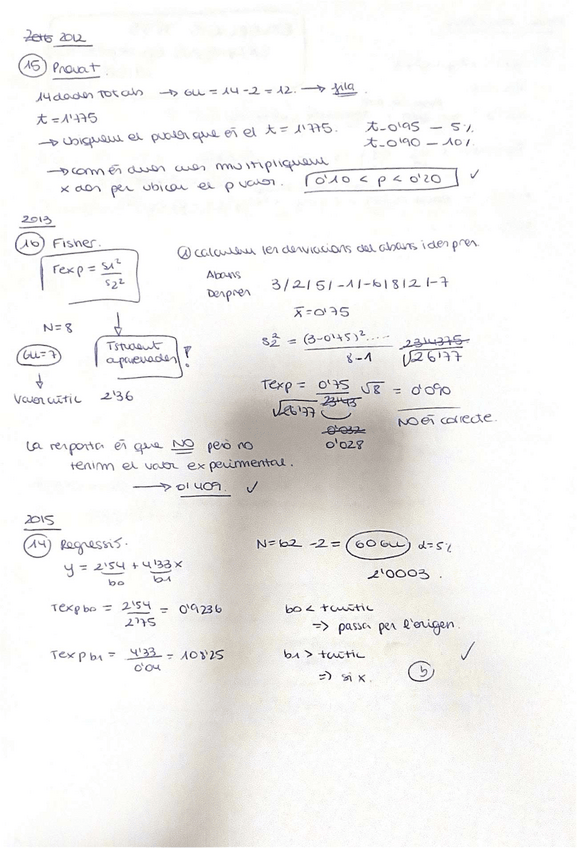 2012
15 Prova t.
14 dades totals → GLL = 14-2 = 12. → fila
t = 1'775
→ ubiquem el p valor que és el t = 1'775. t-0'95 - 5%
t-0'90 - 10%
→ com és dues cues multipliquem
x dos per ubicar el p valor. 0'10 < p < 0'20 ✓
2013
16 Fisher.
Texp = s1² / s2²
① calculem les desviacions del abans i després
Abans
Després 3/2/5/-1/-6/8/2/-7
x̄ = 0'75
N = 8
GLL = 7
Tstudent aparellades !
s2² = (3-0'75)²..... / 8-1 2314375 √26'77
Valor crític 2'36
Texp = 0'75 / √26'77 √8 = 0'090
2343
0'032
0'028
NO és correcte.
La resposta és que NO però no
tenim el valor experimental.
→ 0'409. ✓
2015
14 Regressió.
y = 2'54 + 4'33x
b0 b1
N = 62 -2 = 60 GLL α = 5%
2'0003.
Texp b0 = 2'54 / 2'75 = 0'9236
b0 < t crític
=> passa per l'origen.
Texp b1 = 4'33 / 0'04 = 108'25
b1 > t crític ✓
=> si x. b